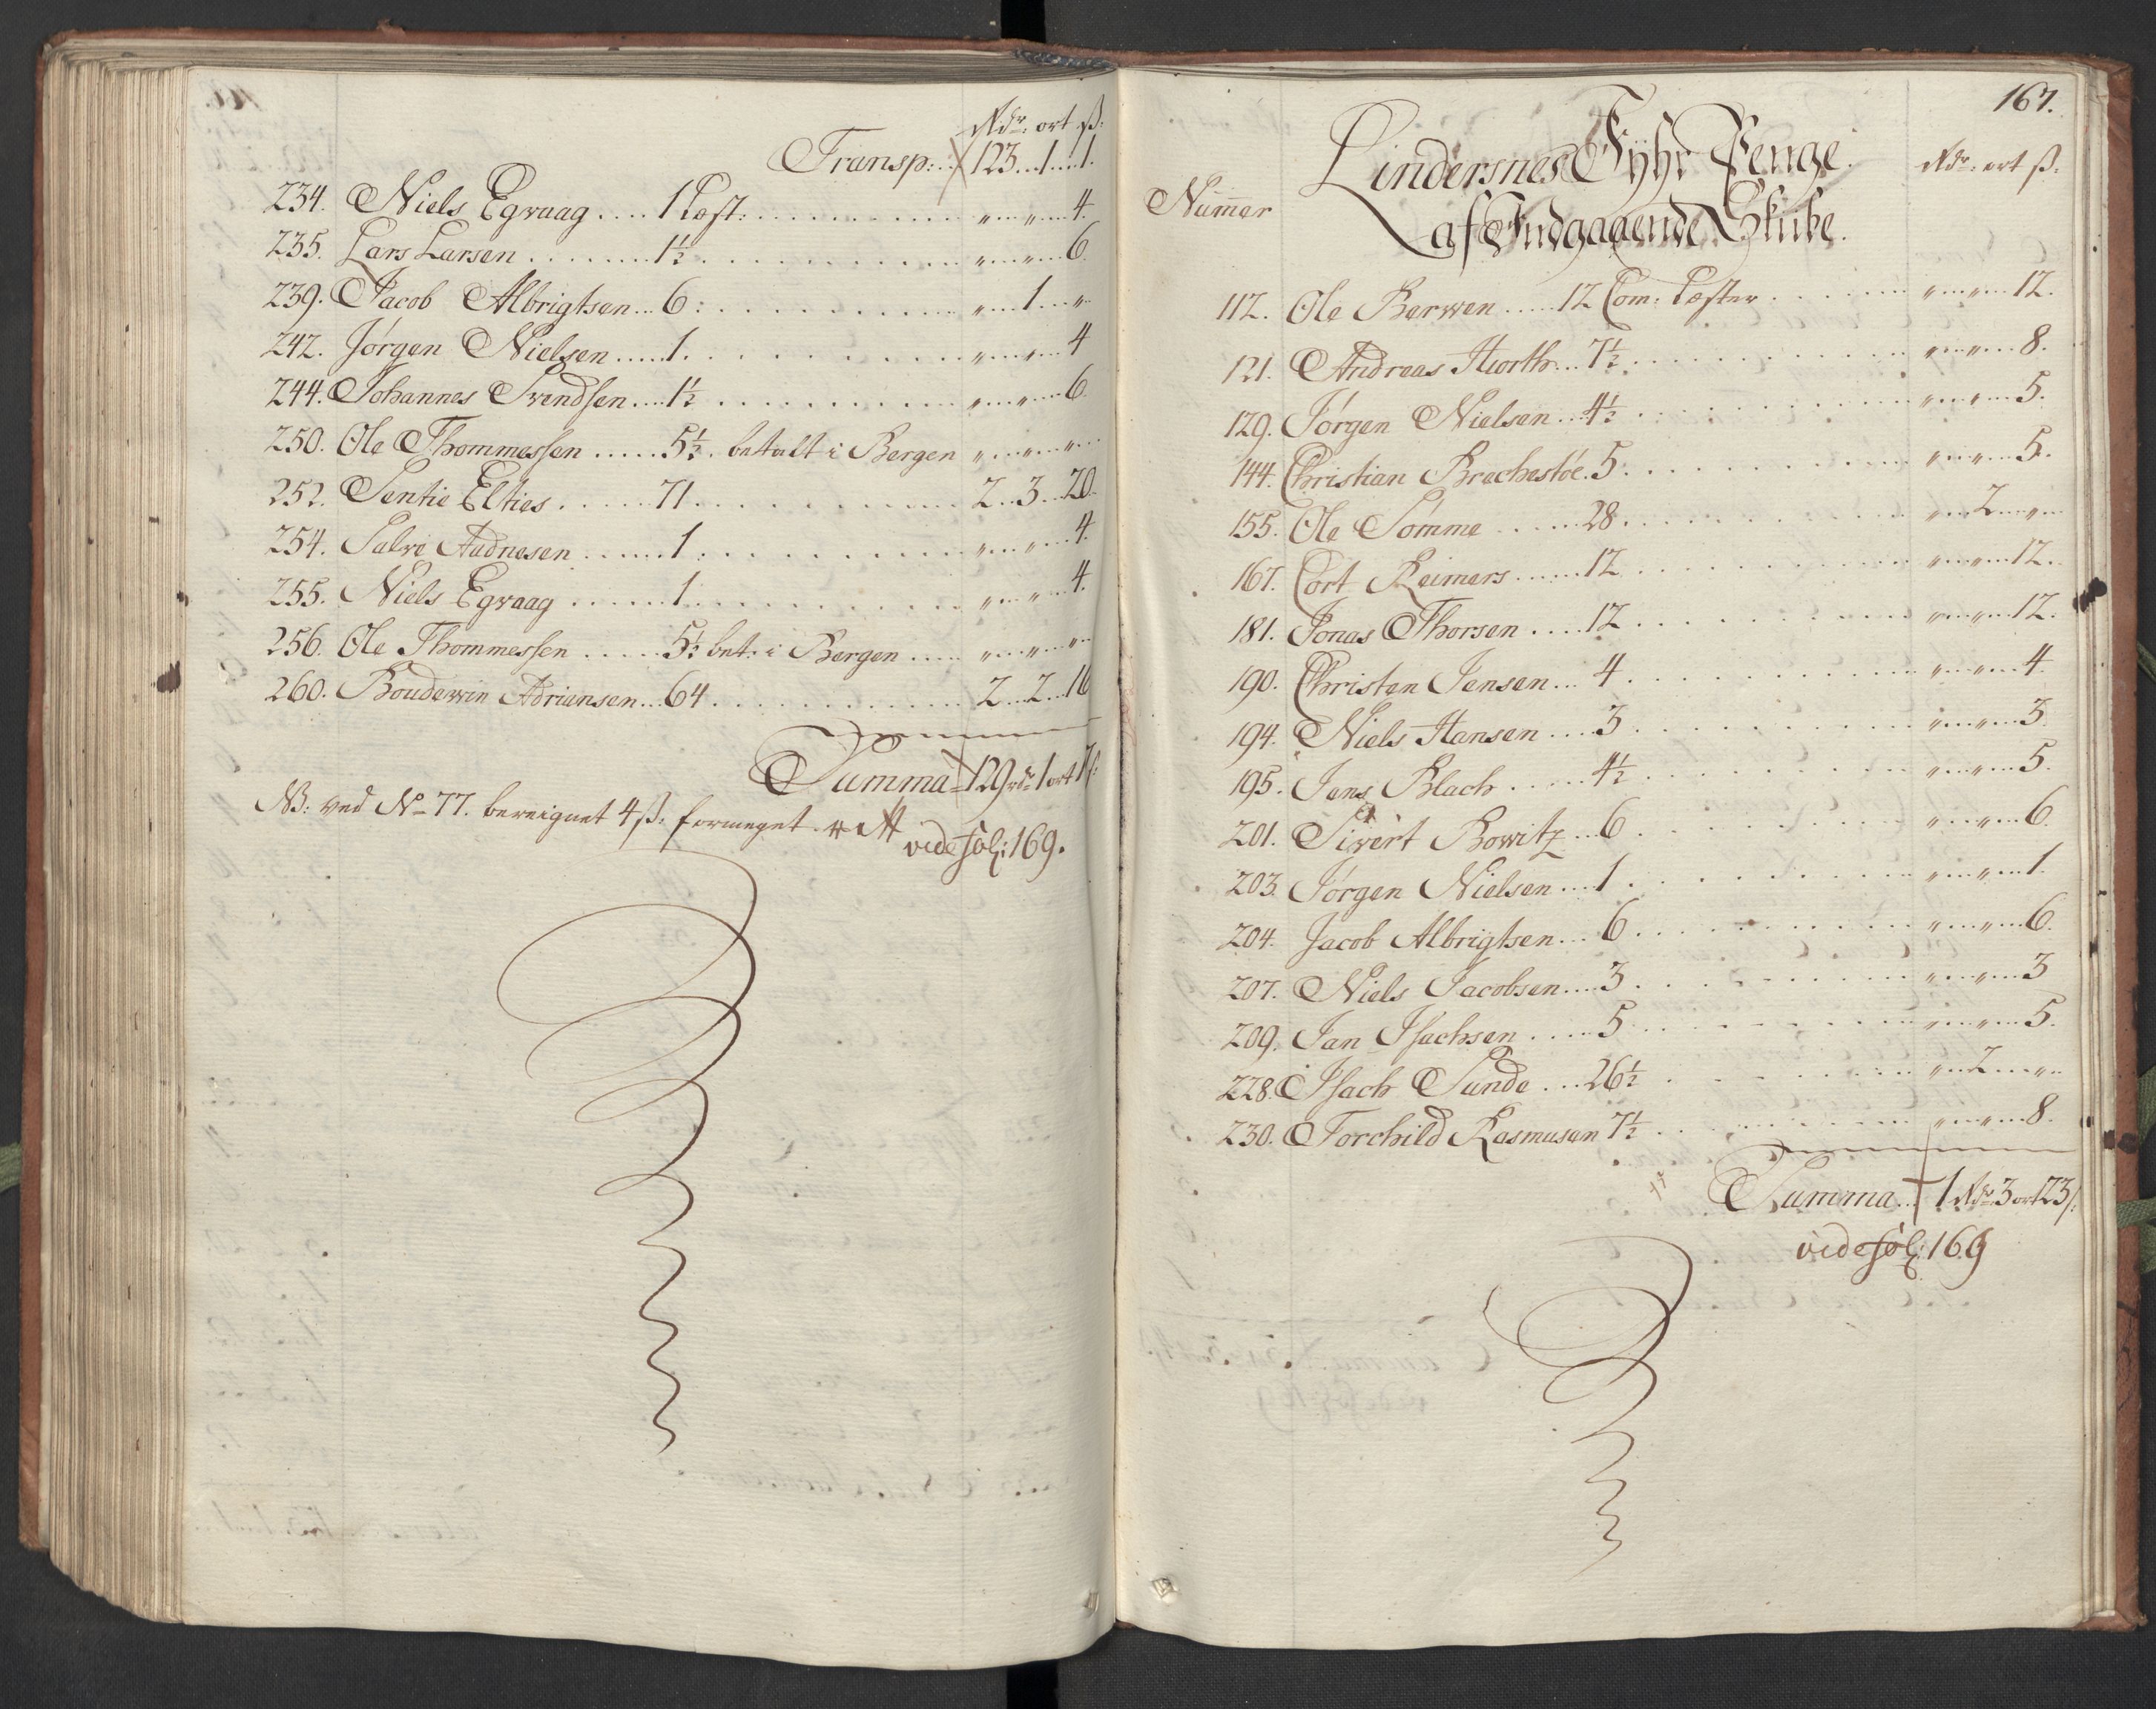 Rdr: ort ß:
Transp: 123 .. 1 .. 1.
234. Niels Egvaag .... 1 Læst: .......... " .. " .. 4.
235. Lars Larsen ........ 1½ .......... " .. " .. 6.
239. Jacob Albrigtsen ... 6: .......... " .. 1 .. "
242. Jørgen Nielsen ..... 1. .......... " .. " .. 4
244. Johannes Svendsen .... 1½ .......... " .. " .. 6.
250. Ole Thommessen ..... 5½. betalt i Bergen " .. " .. "
252. Sentie Elties ...... 71. .......... 2 .. 3 .. 20.
254. Salve Aadnesen ...... 1. .......... " .. " .. 4.
255. Niels Egvaag ...... 1. .......... " .. " .. 4.
256. Ole Thommessen ..... 5½ bet: i Bergen .... " .. " .. "
260. Boudewin Adriansen ... 64 .......... 2 .. 2 .. 16
Summa 129 rdr 1 ort 17 ß:
NB: ved No 77. bereignet 4 ß: formeget
vide fol: 169.
167.
Lindersnes Fyhr Penge
Rdr: ort ß:
Nummer
af Indgaaende Skibe.
112. Ole Berwen ..... 12 Com: Læster ...... " .. " .. 12.
121. Andreas Hiorth ... 7½ .......... " .. " .. 8.
129. Jørgen Nielsen ... 4½ .......... " .. " .. 5.
144. Christian Brechestøe. 5. .......... " .. " .. 5.
155. Ole Somme ..... 28. .......... " .. 2 .. "
167. Cort Reimers ..... 12 .......... " .. " .. 12.
181. Jonas Thorsen .... 12 .......... " .. " .. 12.
190. Christen Jensen ... 4. .......... " .. " .. 4.
194. Niels Hansen .... 3 .......... " .. " .. 3.
195. Jens Blach ..... 4½ .......... " .. " .. 5.
201. Sivert Bowitz ... 6 .......... " .. " .. 6.
203. Jørgen Nielsen .... 1. .......... " .. " .. 1.
204. Jacob Albrigtsen ... 6. .......... " .. " .. 6.
207. Niels Jacobsen .... 3. .......... " .. " .. 3
209. Jan Isachsen ..... 5 .......... " .. " .. 5.
228. Isach Sunde .... 26½ .......... " .. 2 .. "
230. Torchild Rasmusen 7½ .......... " .. " .. 8.
Summa .. 1 Rdr 3 ort 23 ß:
vide fol: 169